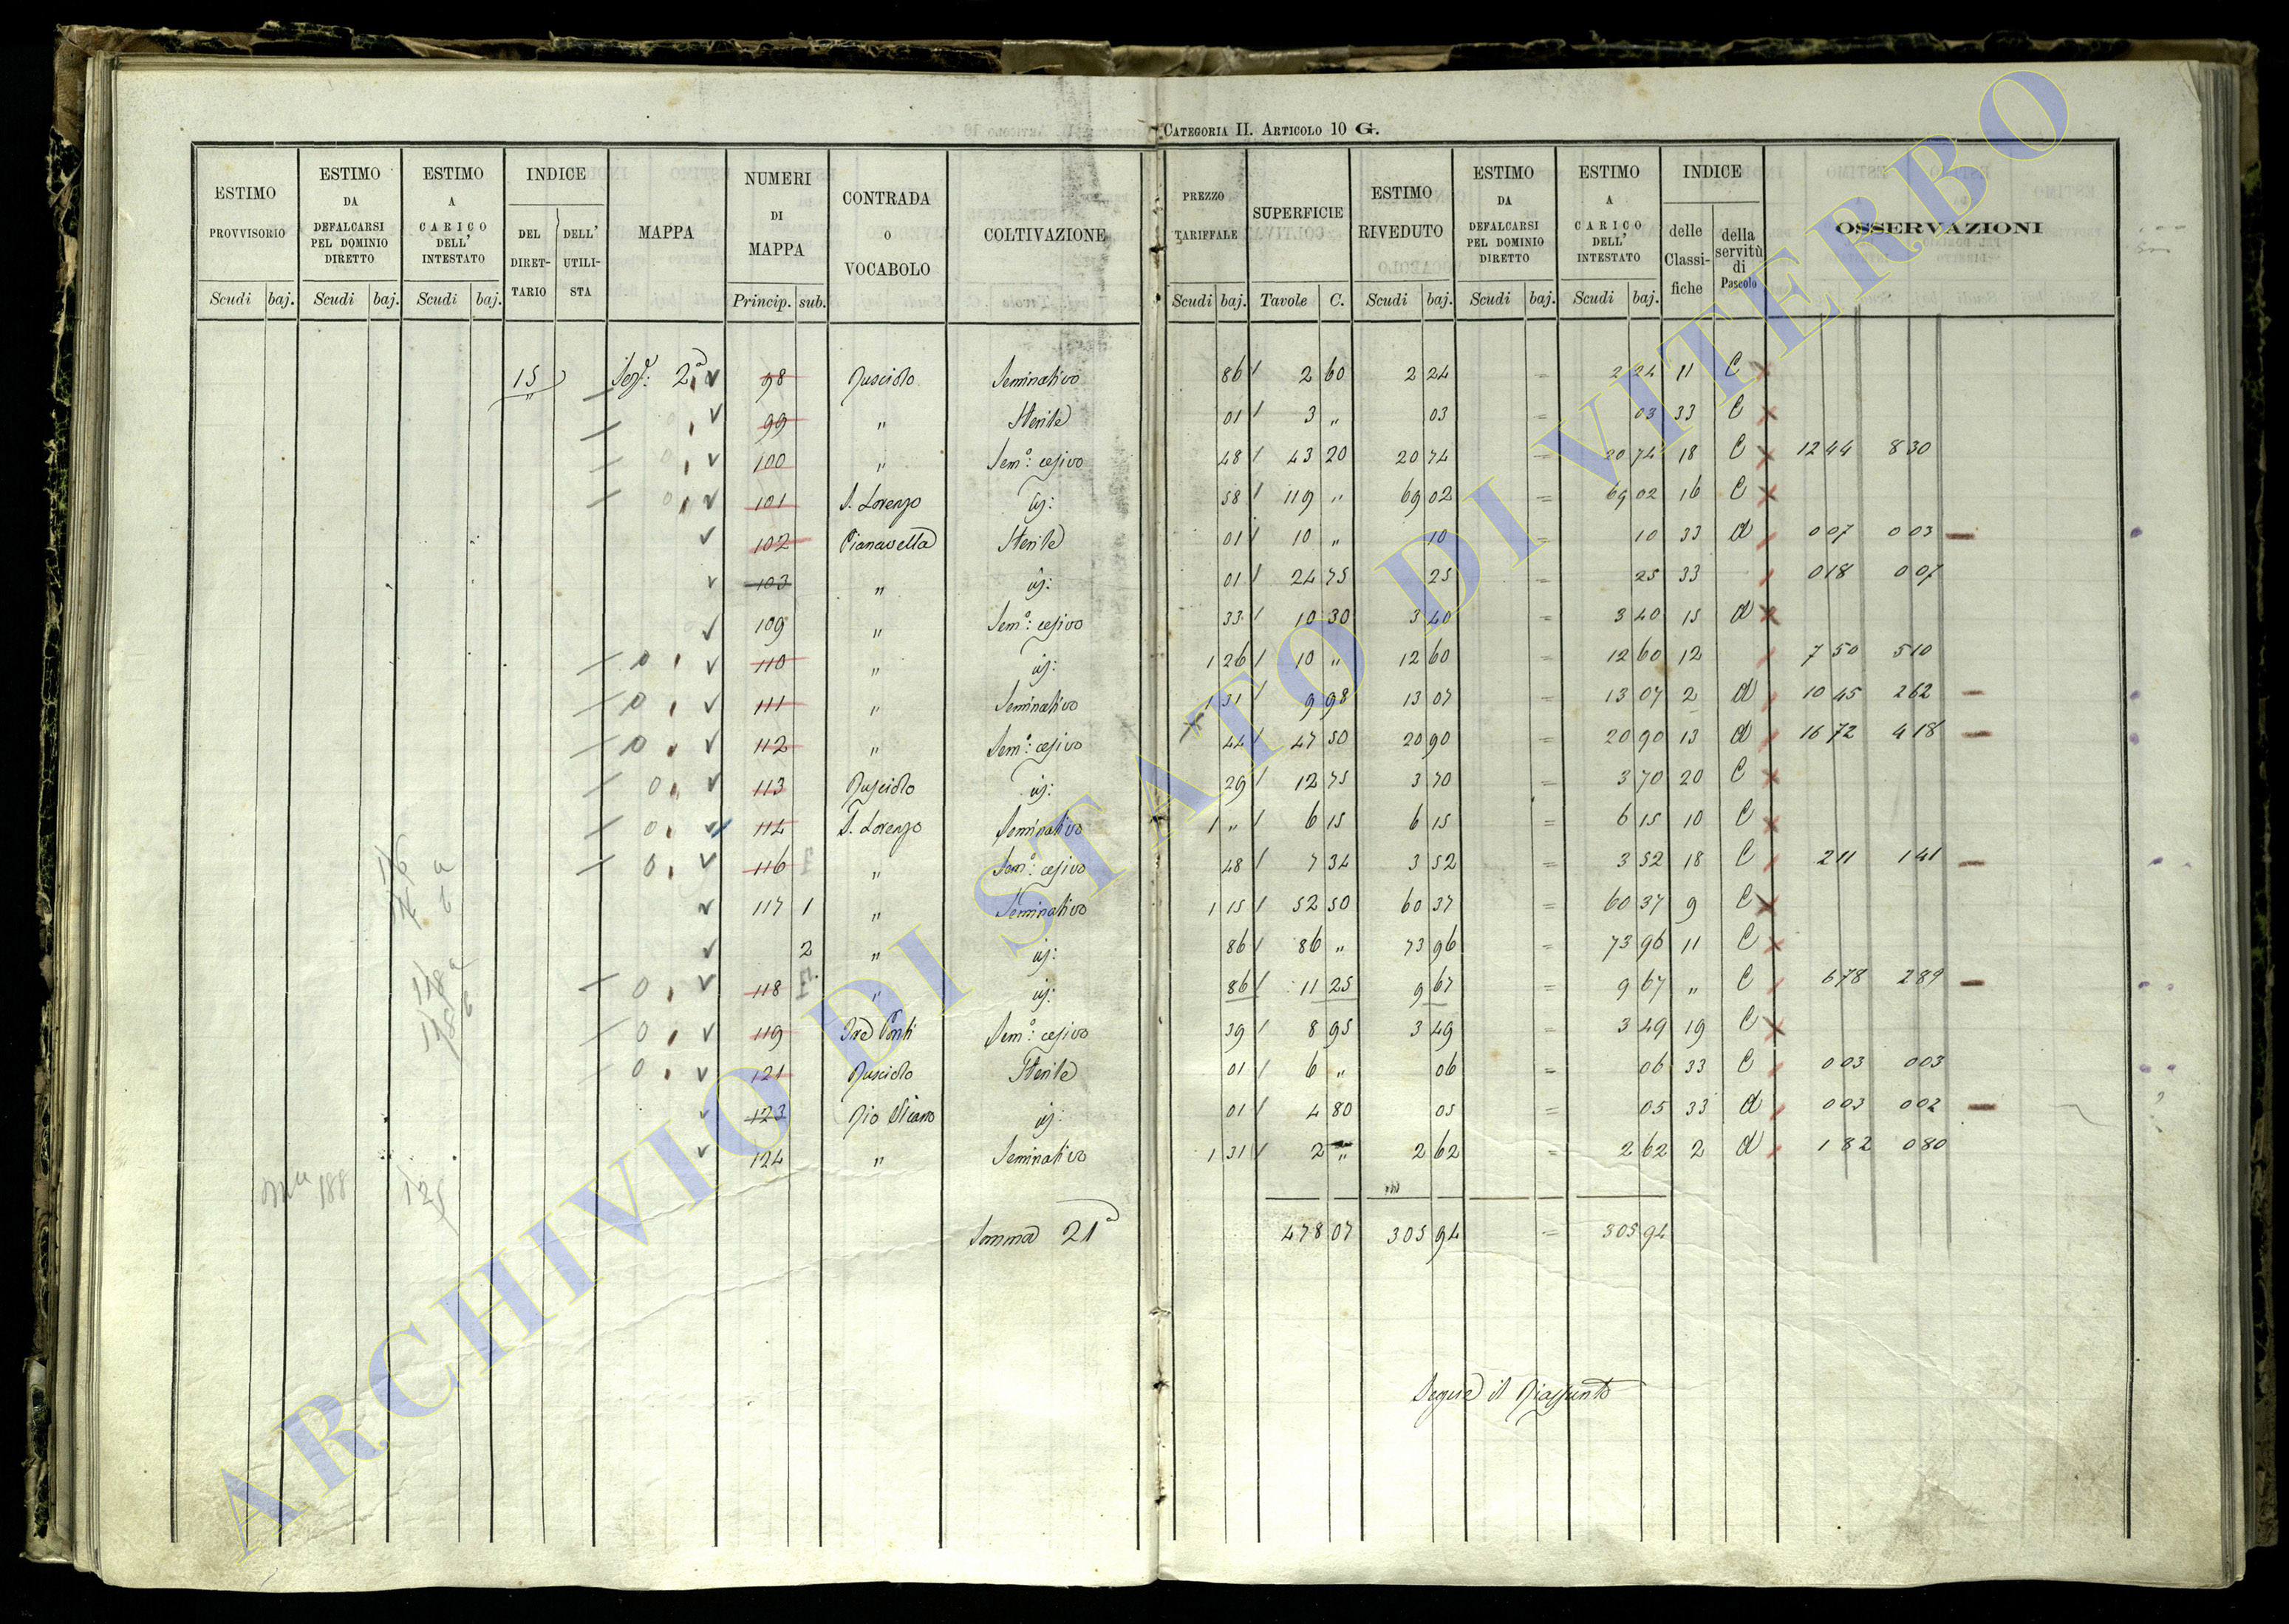 CATEGORIA II. ARTICOLO 10 G.
ESTIMO PROVVISORIO | ESTIMO DA DEFALCARSI PEL DOMINIO DIRETTO | ESTIMO A CARICO DELL' INTESTATO | INDICE | MAPPA | NUMERI DI MAPPA | CONTRADA O VOCABOLO | COLTIVAZIONE | PREZZO TARIFFALE | SUPERFICIE | ESTIMO RIVEDUTO | ESTIMO DA DEFALCARSI PEL DOMINIO DIRETTO | ESTIMO A CARICO DELL' INTESTATO | INDICE | OSSERVAZIONI
DEL DIRETTARIO | DELL' UTILISTA | delle Classifiche | della servitù di Pascolo
Scudi | baj. | Scudi | baj. | Scudi | baj. | Princip. | sub. | Scudi | baj. | Tavole | C. | Scudi | baj. | Scudi | baj. | Scudi | baj.
15 | Sez.e: 2a | 98 | Rusciolo | Seminativo | 86 | 2 60 | 2 24 | = | 2 24 | 11 | C
99 | " | Sterile | 01 | 3 " | 03 | = | 03 | 33 | C
100 | " | Sem.o: cesivo | 48 | 43 20 | 20 74 | = | 20 74 | 18 | C | 12 44 | 8 30
101 | S. Lorenzo | id: | 58 | 119 " | 69 02 | = | 69 02 | 16 | C
102 | Pianavella | Sterile | 01 | 10 " | 10 | = | 10 | 33 | d | 0 07 | 0 03
103 | " | id: | 01 | 24 75 | 25 | = | 25 | 33 | 0 18 | 0 07
109 | " | Sem.o: cesivo | 33 | 10 30 | 3 40 | = | 3 40 | 15 | d
110 | " | id: | 1 26 | 10 " | 12 60 | = | 12 60 | 12 | 7 50 | 5 10
111 | " | Seminativo | 1 31 | 9 98 | 13 07 | = | 13 07 | 2 | d | 10 45 | 2 62
112 | " | Sem.o: cesivo | 44 | 47 50 | 20 90 | = | 20 90 | 13 | d | 16 72 | 4 18
113 | Rusciolo | id: | 29 | 12 75 | 3 70 | = | 3 70 | 20 | C
114 | S. Lorenzo | Seminativo | 1 " | 6 15 | 6 15 | = | 6 15 | 10 | C
116 | " | Sem.o: cesivo | 48 | 7 34 | 3 52 | = | 3 52 | 18 | C | 2 11 | 1 41
117 | 1 | " | Seminativo | 1 15 | 52 50 | 60 37 | = | 60 37 | 9 | C
2 | " | id: | 86 | 86 " | 73 96 | = | 73 96 | 11 | C
118 | " | id: | 86 | 11 25 | 9 67 | = | 9 67 | " | C | 6 78 | 2 89
119 | Tre Ponti | Sem.o: cesivo | 39 | 8 95 | 3 49 | = | 3 49 | 19 | C
121 | Rusciolo | Sterile | 01 | 6 " | 06 | = | 06 | 33 | C | 0 03 | 0 03
123 | Rio Vicano | id: | 01 | 4 80 | 05 | = | 05 | 33 | d | 0 03 | 0 02
124 | " | Seminativo | 1 31 | 2 " | 2 62 | = | 2 62 | 2 | d | 1 82 | 0 80
Somma 21a | 478 07 | 305 94 | = | 305 94
Segue il Riassunto
116 a
116 b
118 a
118 b
125
ARCHIVIO DI STATO DI VITERBO